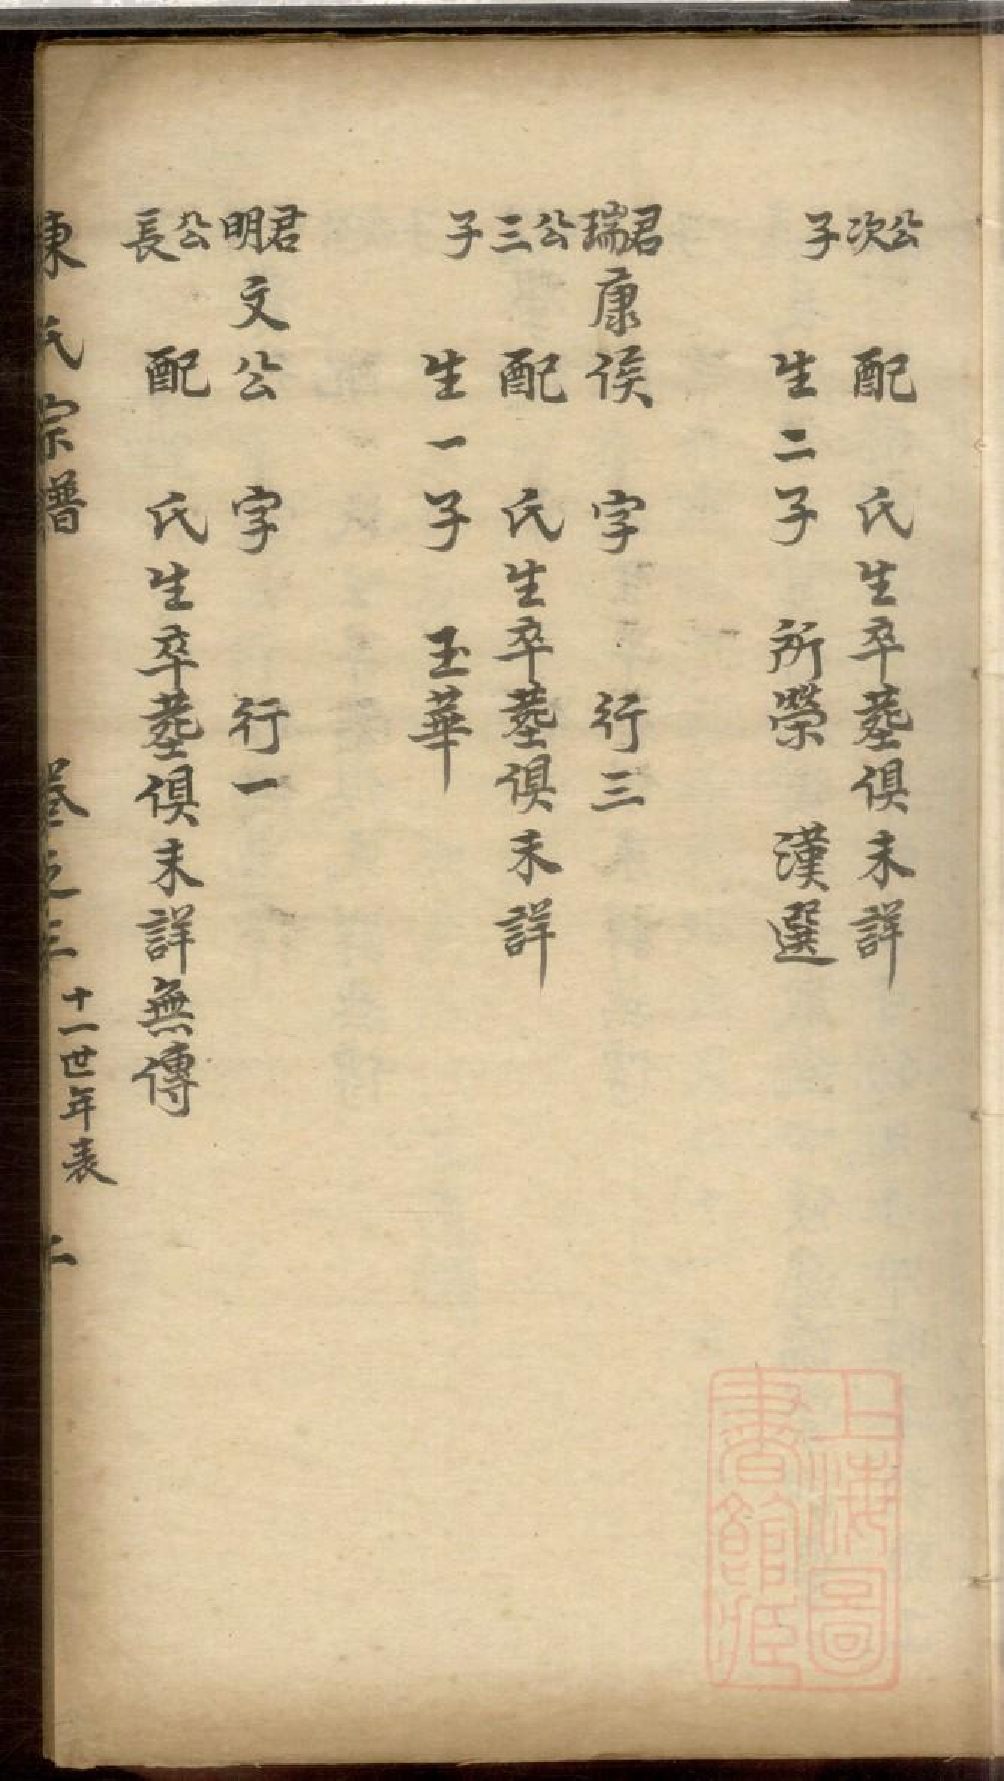 公次子 配 氏生卒墓俱未詳
生二子 所榮 漢選
君瑞公三子 康侯 字 行三
配 氏生卒墓俱未詳
生一子 玉華
君明公長 文公 字 行一
配 氏生卒墓俱未詳無傳
陳氏宗譜 卷之三 十一世年表 二
上海圖
書館藏